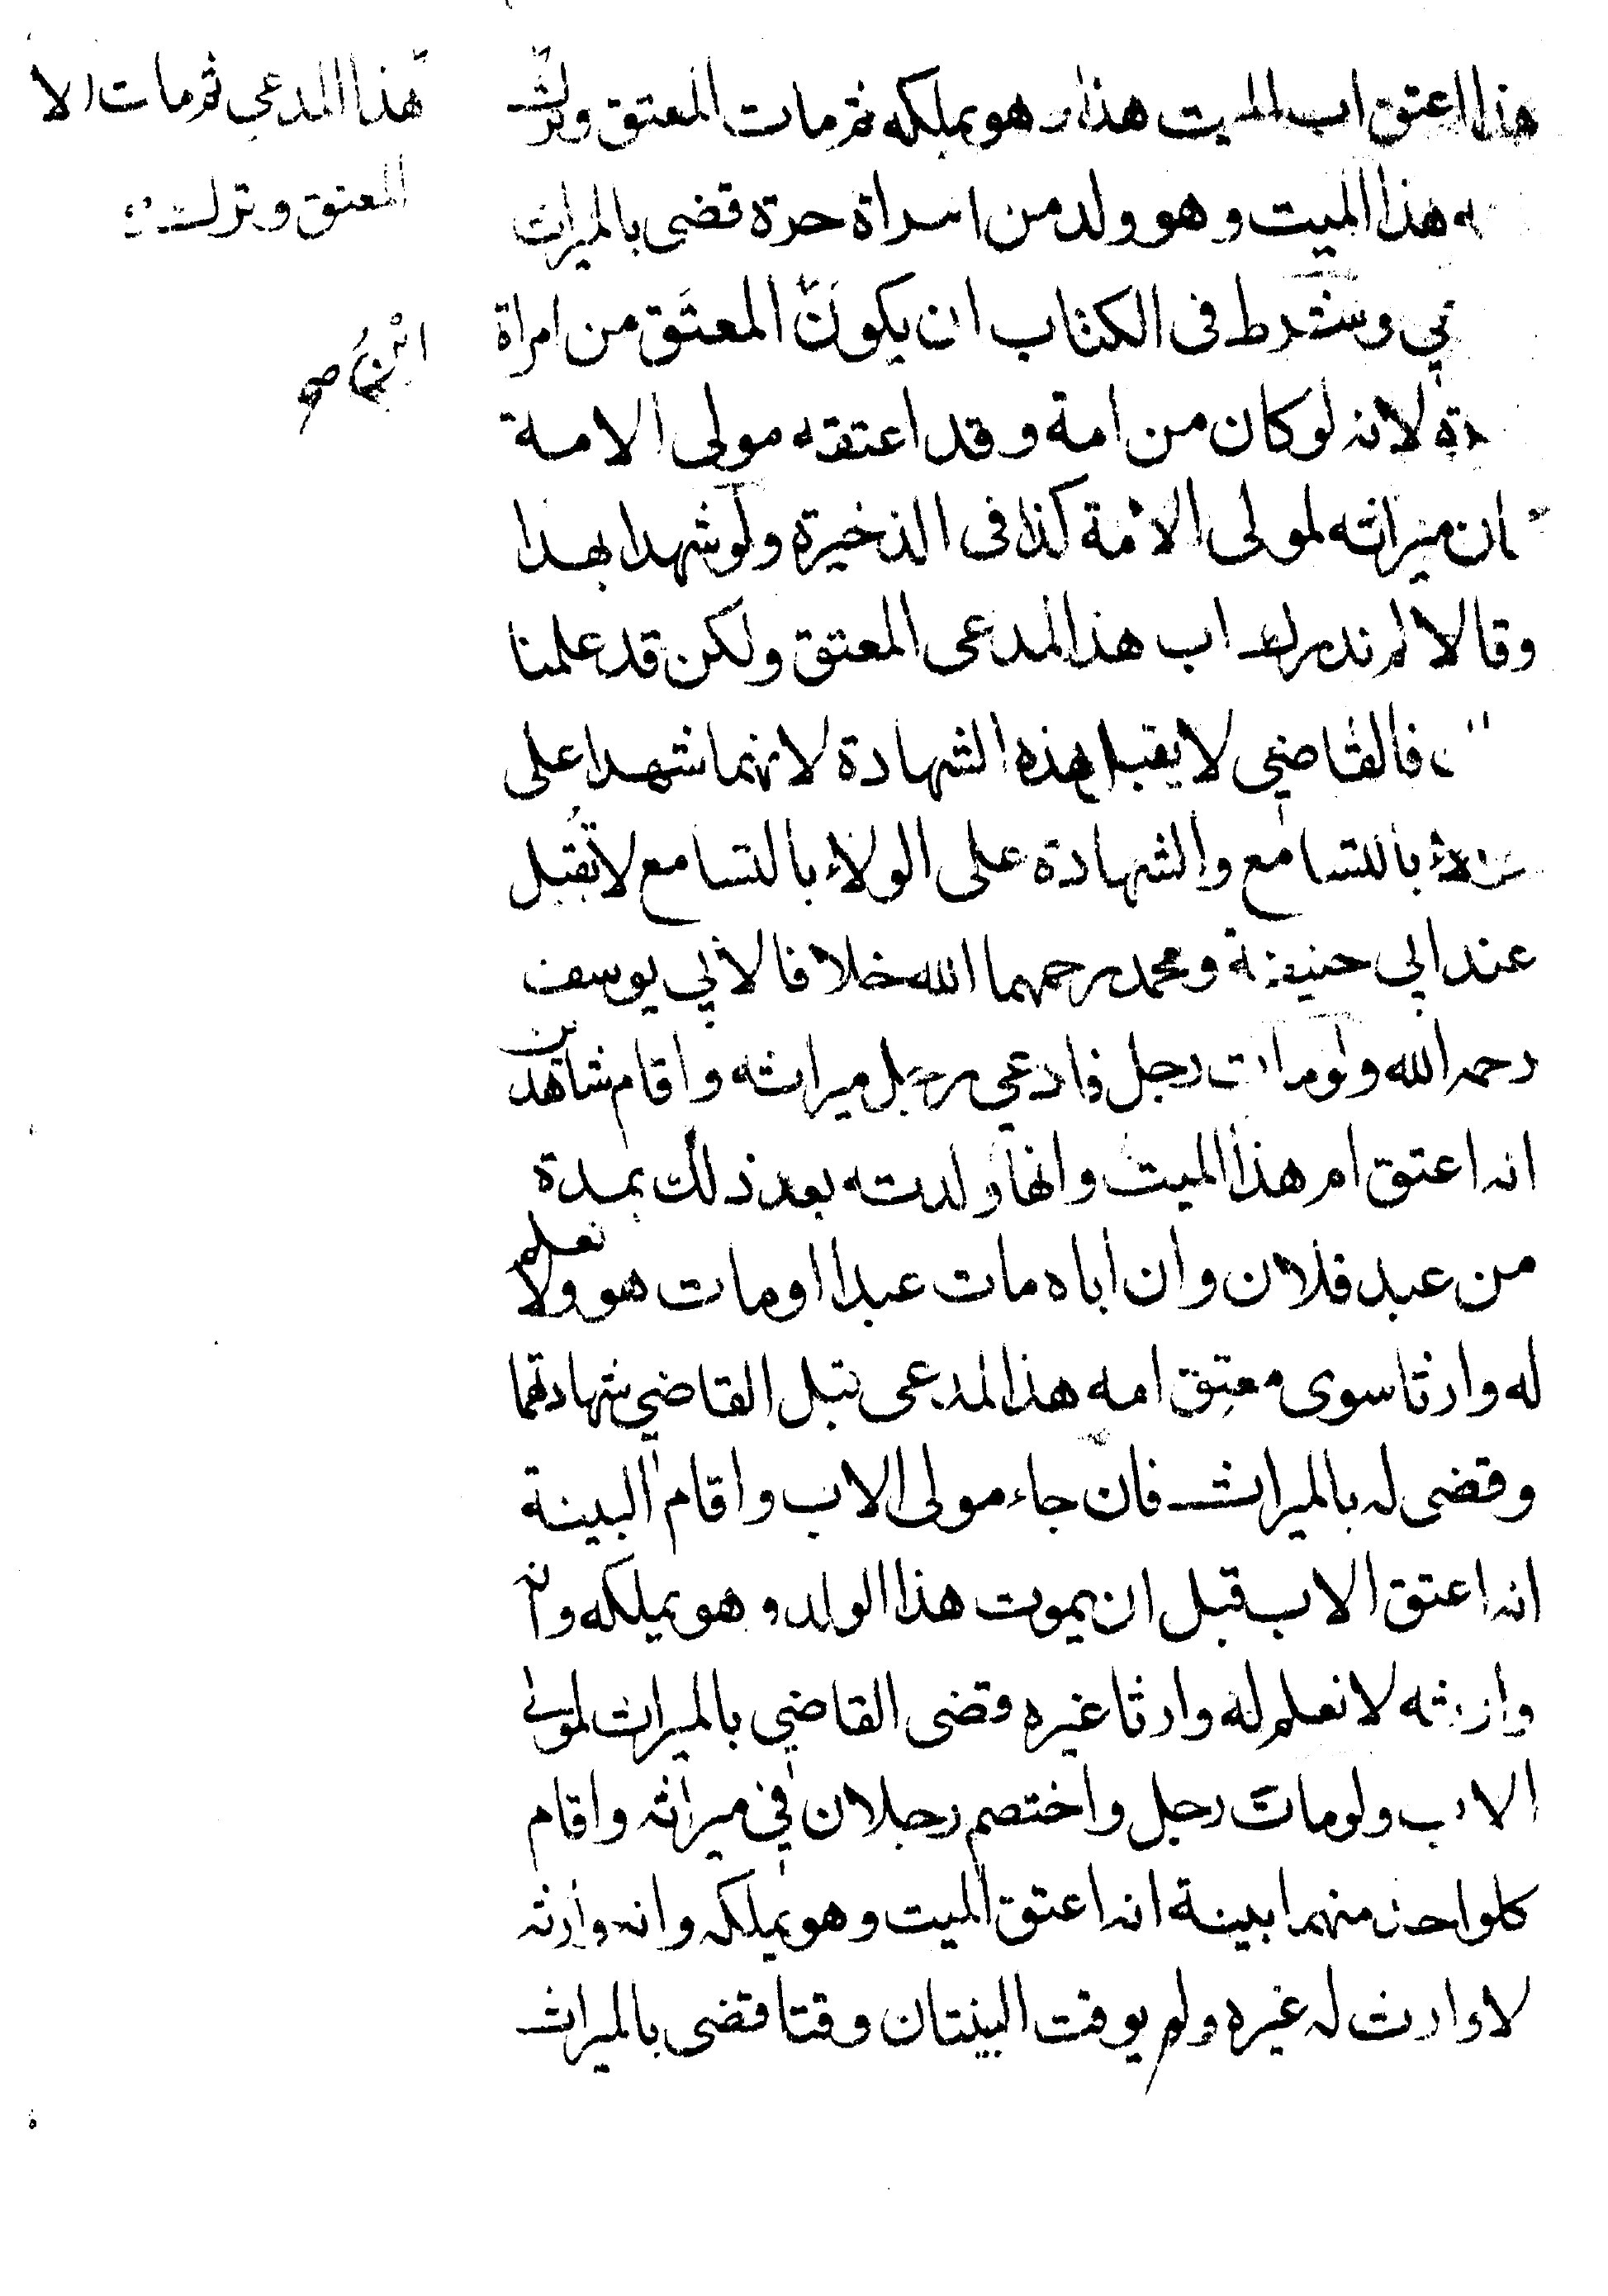 هذا اعتق اب الميت هذا وهو يملكه ثم مات المعتق وترك
هذا الميت وهو ولد من امراة حرة قضى بالميراث
وشرط فى الكتاب ان يكون المعتق من امراة
لانه لو كان من امة وقد اعتقه مولى الامة
ان ميراثه لمولى الامة كذا فى الذخيرة ولو شهدا بهذا
وقالا لم ندرك اب هذا المدعى المعتق ولكن قد علمنا
فالقاضي لا يقبل هذه الشهادة لانهما شهدا على
ولاء بالتسامع والشهادة على الولاء بالتسامع لا تقبل
عند ابي حنيفة ومحمد رحمهما الله خلافا لابي يوسف
رحمه الله ولو مات رجل فادعي رجل ميراثه واقام شاهدين
انه اعتق ام هذا الميت وانها ولدته بعد ذلك بمدة
من عبد فلان وان اباه مات عبدا او مات هو ولا نعلم
له وارثا سوى معتق امه هذا المدعى قبل القاضي شهادتهما
وقضى له بالميراث فان جاء مولى الاب واقام البينة
انه اعتق الاب قبل ان يموت هذا الولد وهو يملكه وانه
وارثه لا نعلم له وارثا غيره قضى القاضي بالميراث لمولى
الاب ولو مات رجل واختصم رجلان في ميراثه واقام
كلواحد منهما بينة انه اعتق الميت وهو يملكه وانه وارثه
لا وارث له غيره ولم يوقت البينتان وقتا قضى بالميراث
هذا المدعي ثم مات الا
المعتق وترك